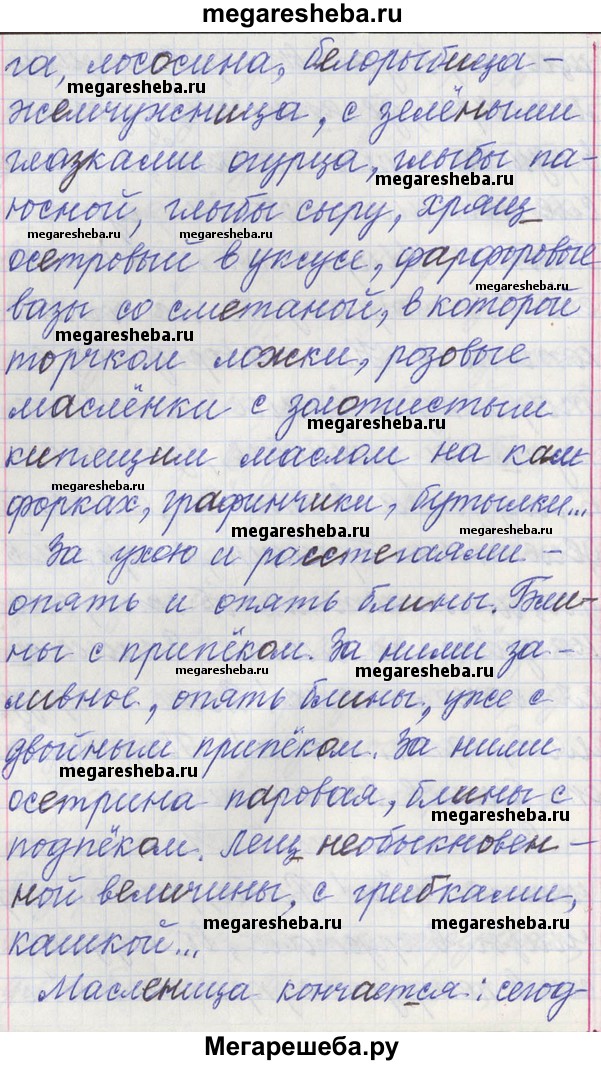 Мегарешеба.ру
megaresheba.ru
га, лососина, белорыбица -
megaresheba.ru
жемчужница, с зелёными
megaresheba.ru
глазками огурца, глыбы па-
megaresheba.ru
юсной, глыбы сыру, хрящ
megaresheba.ru megaresheba.ru
осетровый в уксусе, фарфоровые
вазы со сметаной, в которой
megaresheba.ru
торчком ложки, розовые
маслёнки с золотистым
megaresheba.ru
кипящим маслом на кам-
форках, графинчики, бутылки...
megaresheba.ru megaresheba.ru
За ухою и расстегаями -
опять и опять блины. Бли-
ны с припёком. За ними за-
megaresheba.ru megaresheba.ru
ливное, опять блины, уже с
двойным припёком. За ними
megaresheba.ru
осетрина паровая, блины с
подпёком. Лещ необыкновен-
ной величины, с грибками,
megaresheba.ru megaresheba.ru
кашкой...
Масленица кончается: сегод-
Мегарешеба.ру